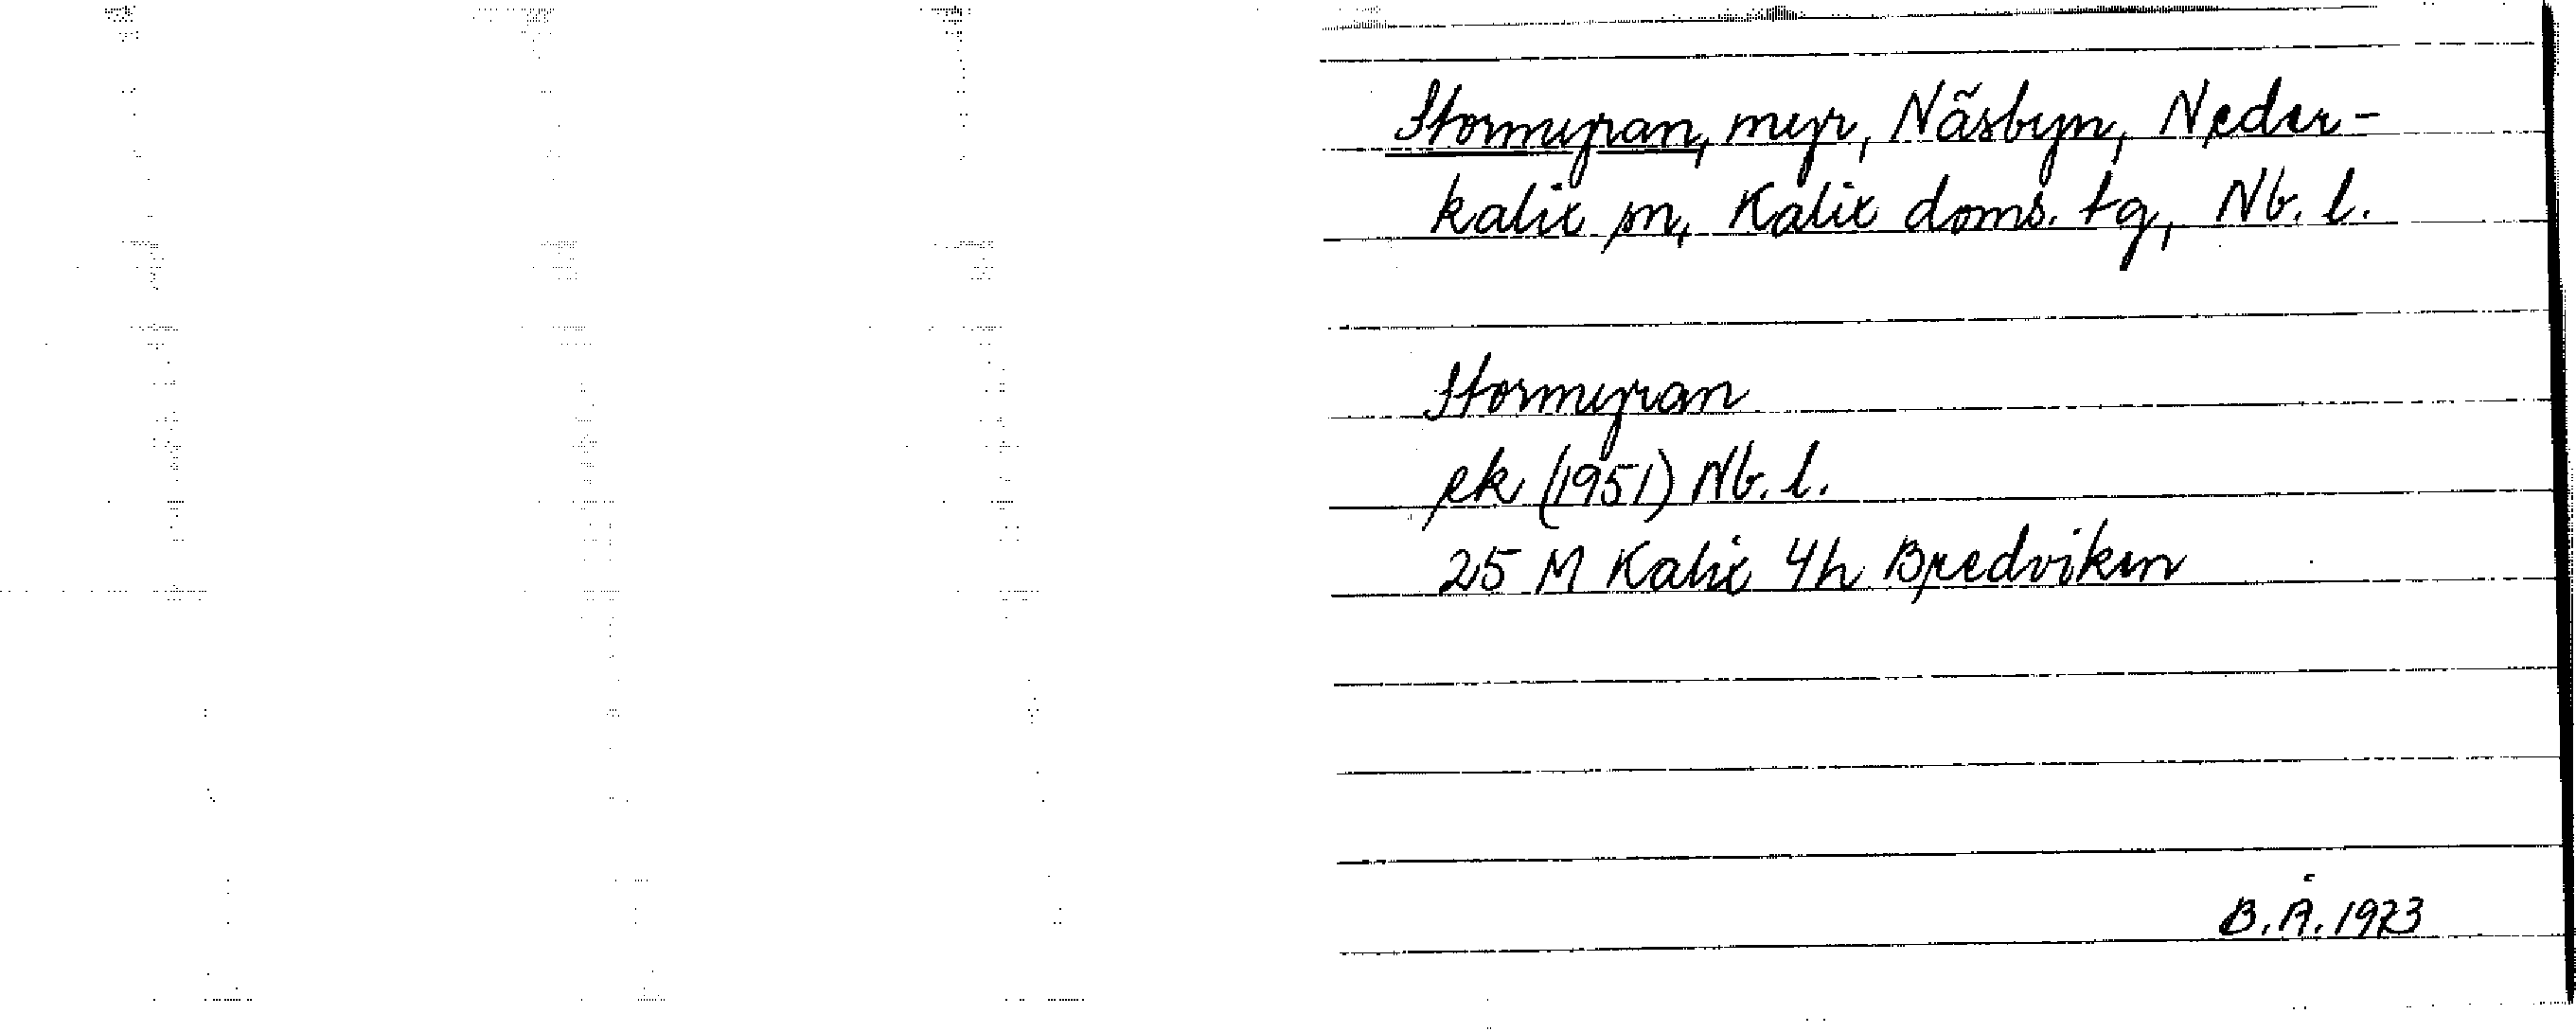 Stormyran, myr, Näsbyn, Neder-
kalix sn, Kalix doms. tg, Nb. l.
Stormyran
ek (1951) Nb. l.
25 M Kalix 4h Bredviken
B.Å. 1973